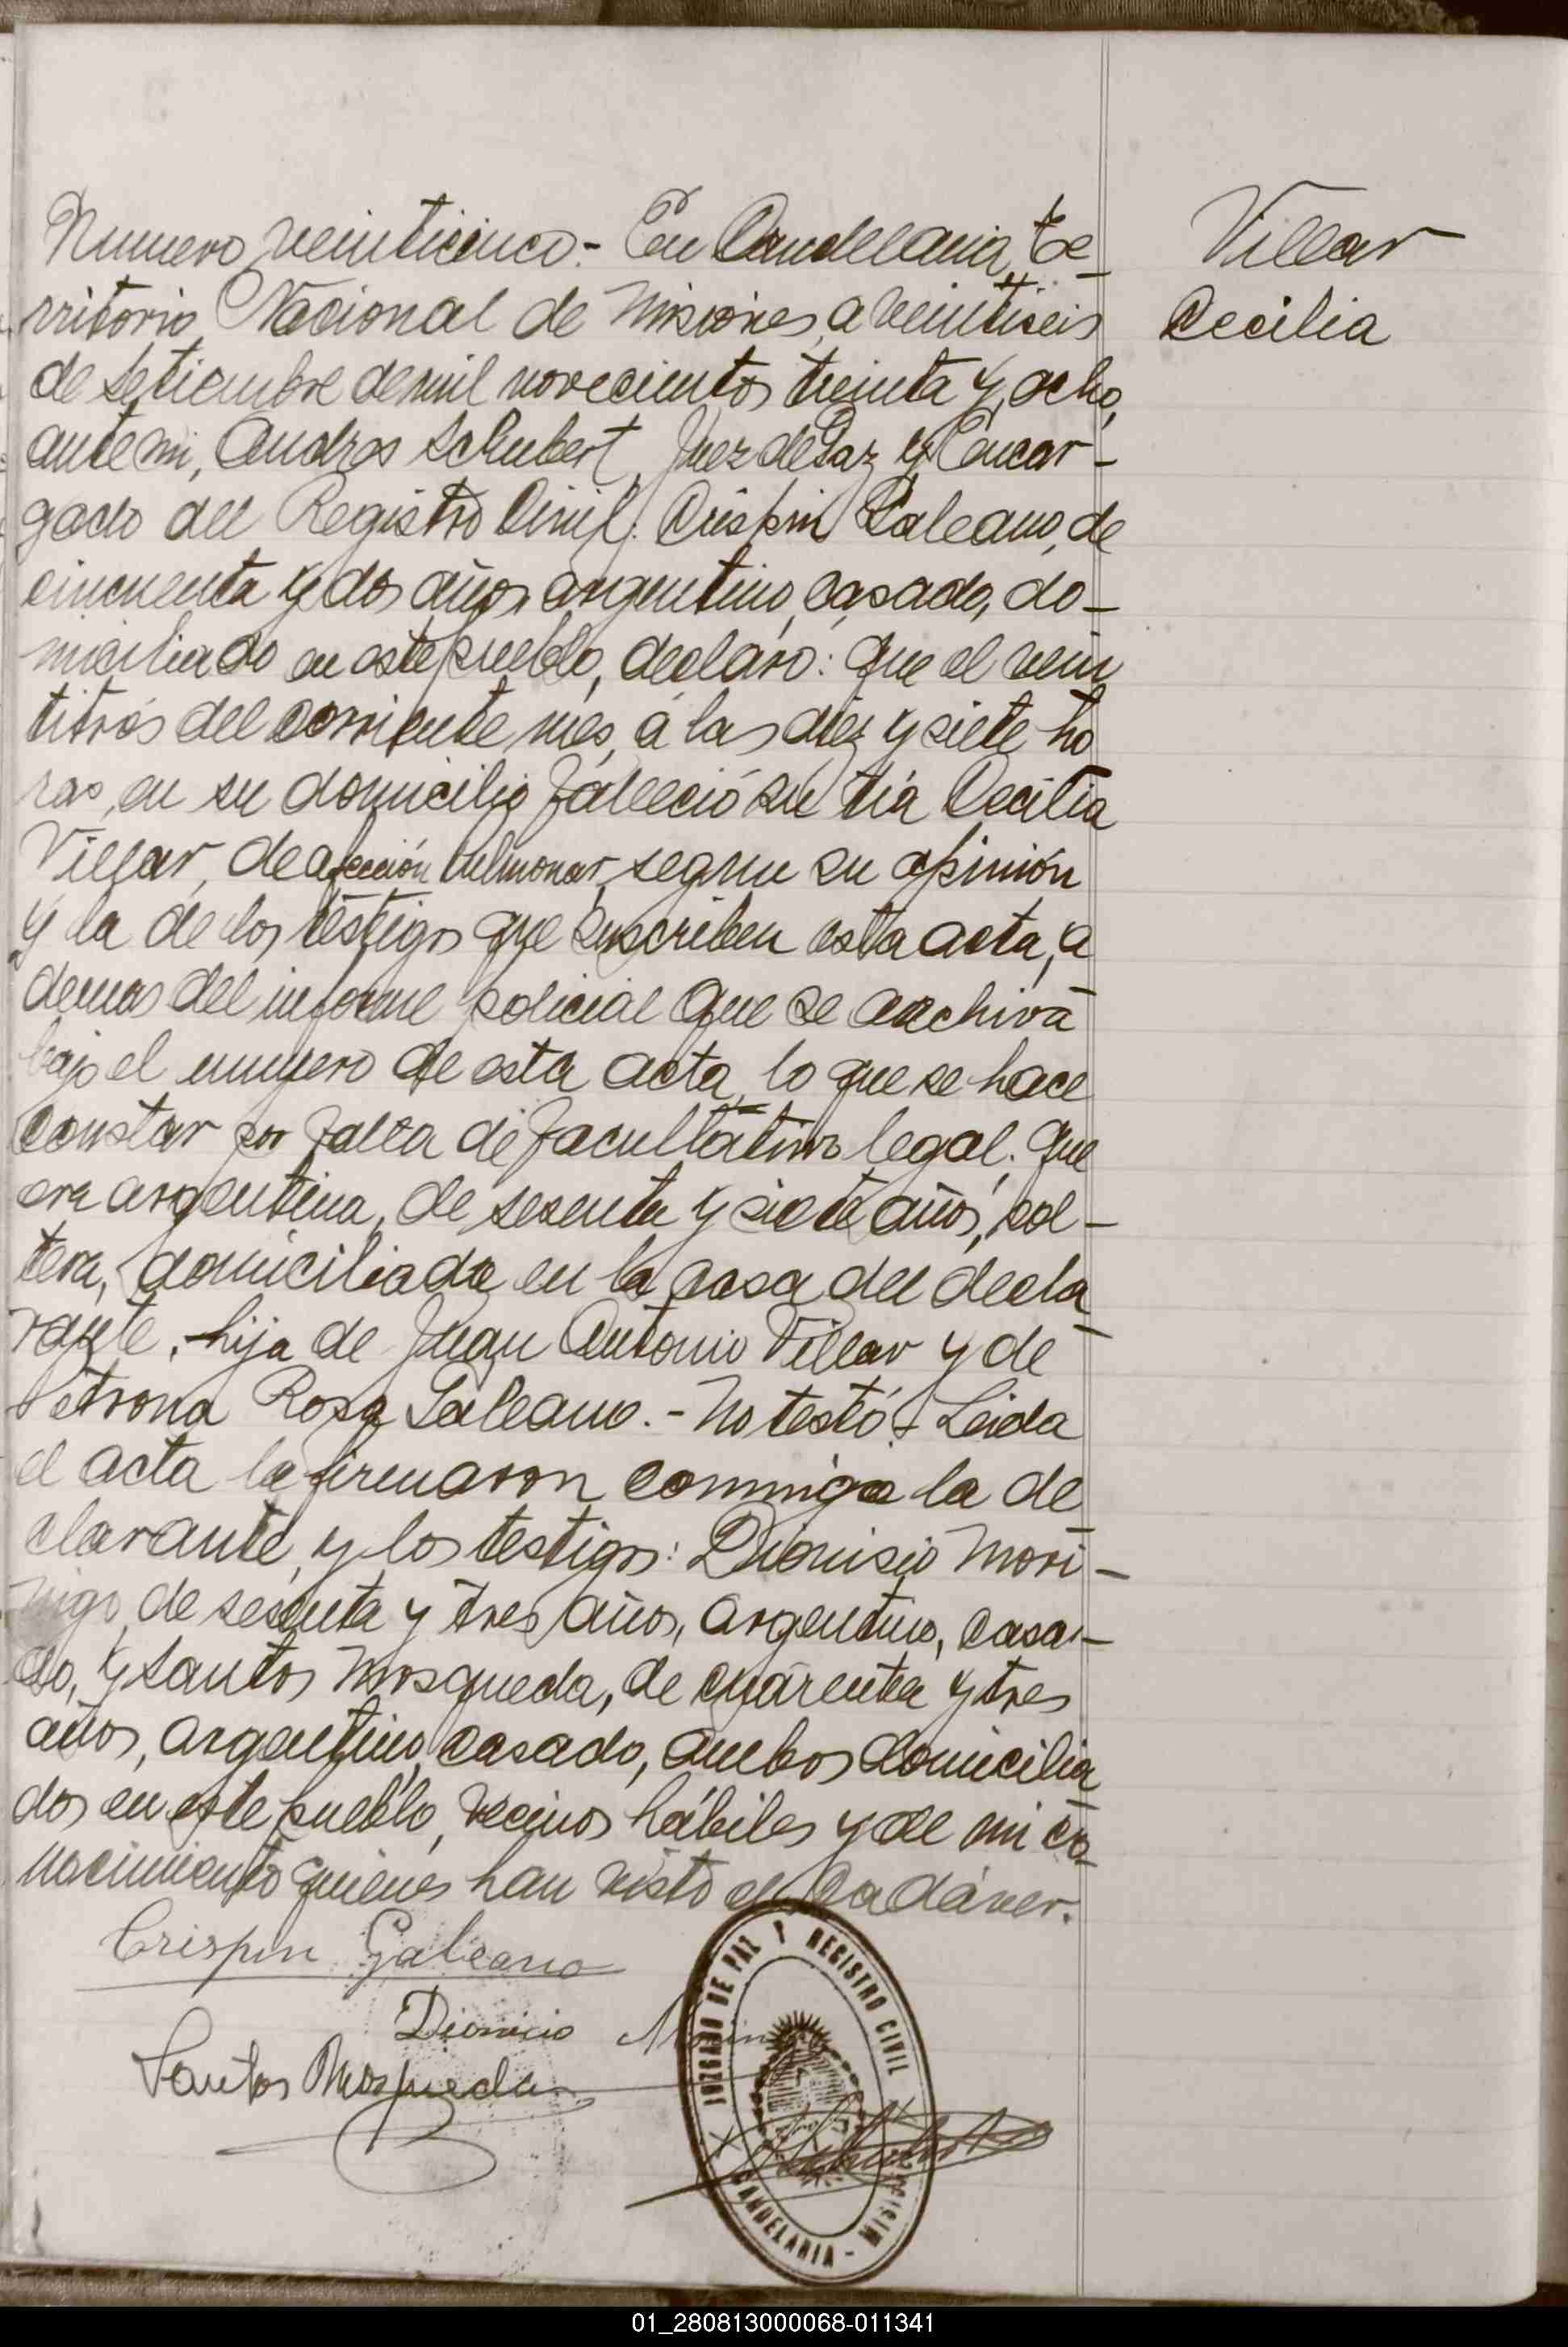 Numero veinticinco.- En Candelaria, Te-
rritorio Nacional de Misiones, a veintiseis
de Setiembre de mil novecientos treinta y ocho,
ante mi, Andres Schubert, Juez de Paz y Encar-
gado del Registro Civil; Crispin Galeano, de
cincuenta y dos años, argentino, casado, do-
miciliado en este pueblo, declaro: Que el vein
titrés del corriente mes, á las diez y siete ho
ras, en su domicilio falleció su tía Cecilia
Villar, de afección pulmonar, segun su opinión
y la de los testigos que suscriben esta acta, a
demas del informe policial que se archiva
bajo el numero de esta acta, lo que se hace
constar por falta de facultativo legal. Que
era argentina, de sesenta y siete años, sol-
tera, domiciliada en la casa del decla
rante, hija de Juan Antonio Villar y de
Petrona Rosa Galeano.- No testó.- Leida
el acta la firmaron conmigo la de
clarante, y los testigos: Dionisio Mori-
nigo, de sesenta y tres años, argentino, casa-
do, y Santos Mosqueda, de cuarenta y tres
años, argentino, casado, ambos domicilia
dos en este pueblo, vecinos hábiles y de mi co-
nocimiento quienes han visto el cadáver.
Villar
Cecilia
Crispin Galeano
Dionicio
Santos Mosqueda
JUZGADO DE PAZ Y REGISTRO CIVIL
CANDELARIA - MISIONES
01_280813000068-011341